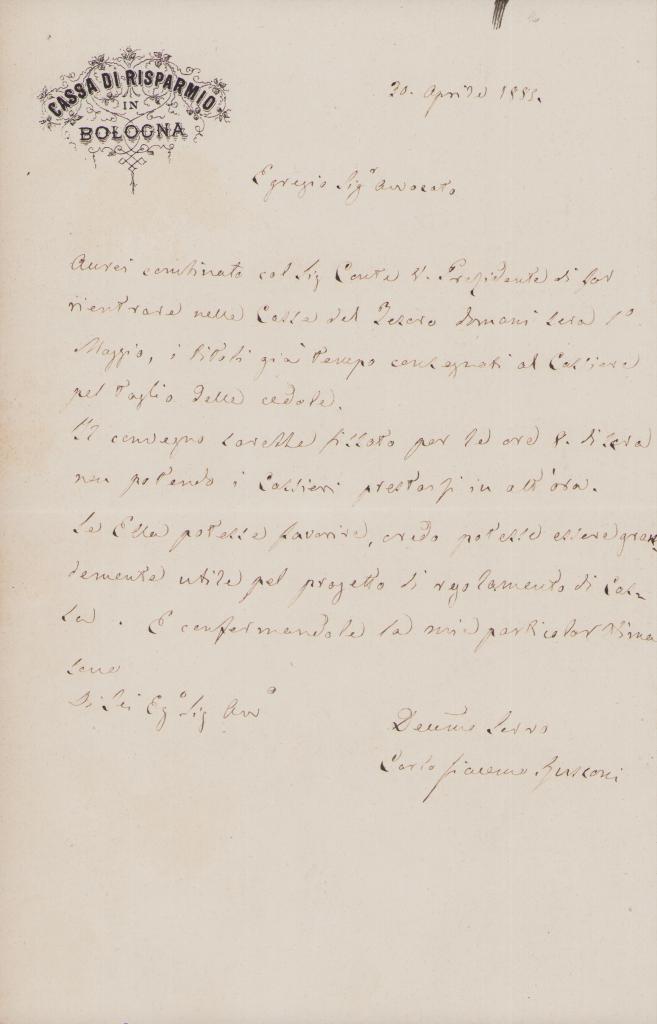 CASSA DI RISPARMIO
IN
BOLOGNA
30. Aprile 1883.
Egregio Sigr Avvocato
Aurei combinato col Sig Conte V. Presidente di far
rientrare nelle Casse del Tesoro domani sera 1o
Maggio, i titoli già tempo consegnati al Cassiere
pel taglio delle cedole.
Il convegno sarebbe fissato per le ore 8. di sera
non potendo i Cassieri prestarsi in altr'ora.
Se Ella potesse favorire, credo potesse essere gran-
demente utile pel progetto di regolamento di Cas-
sa. E confermandole la mia particolar stima
sono
Di Lei Ego Sig Avvo
Devmo Servo
Carlo Giacomo Rusconi